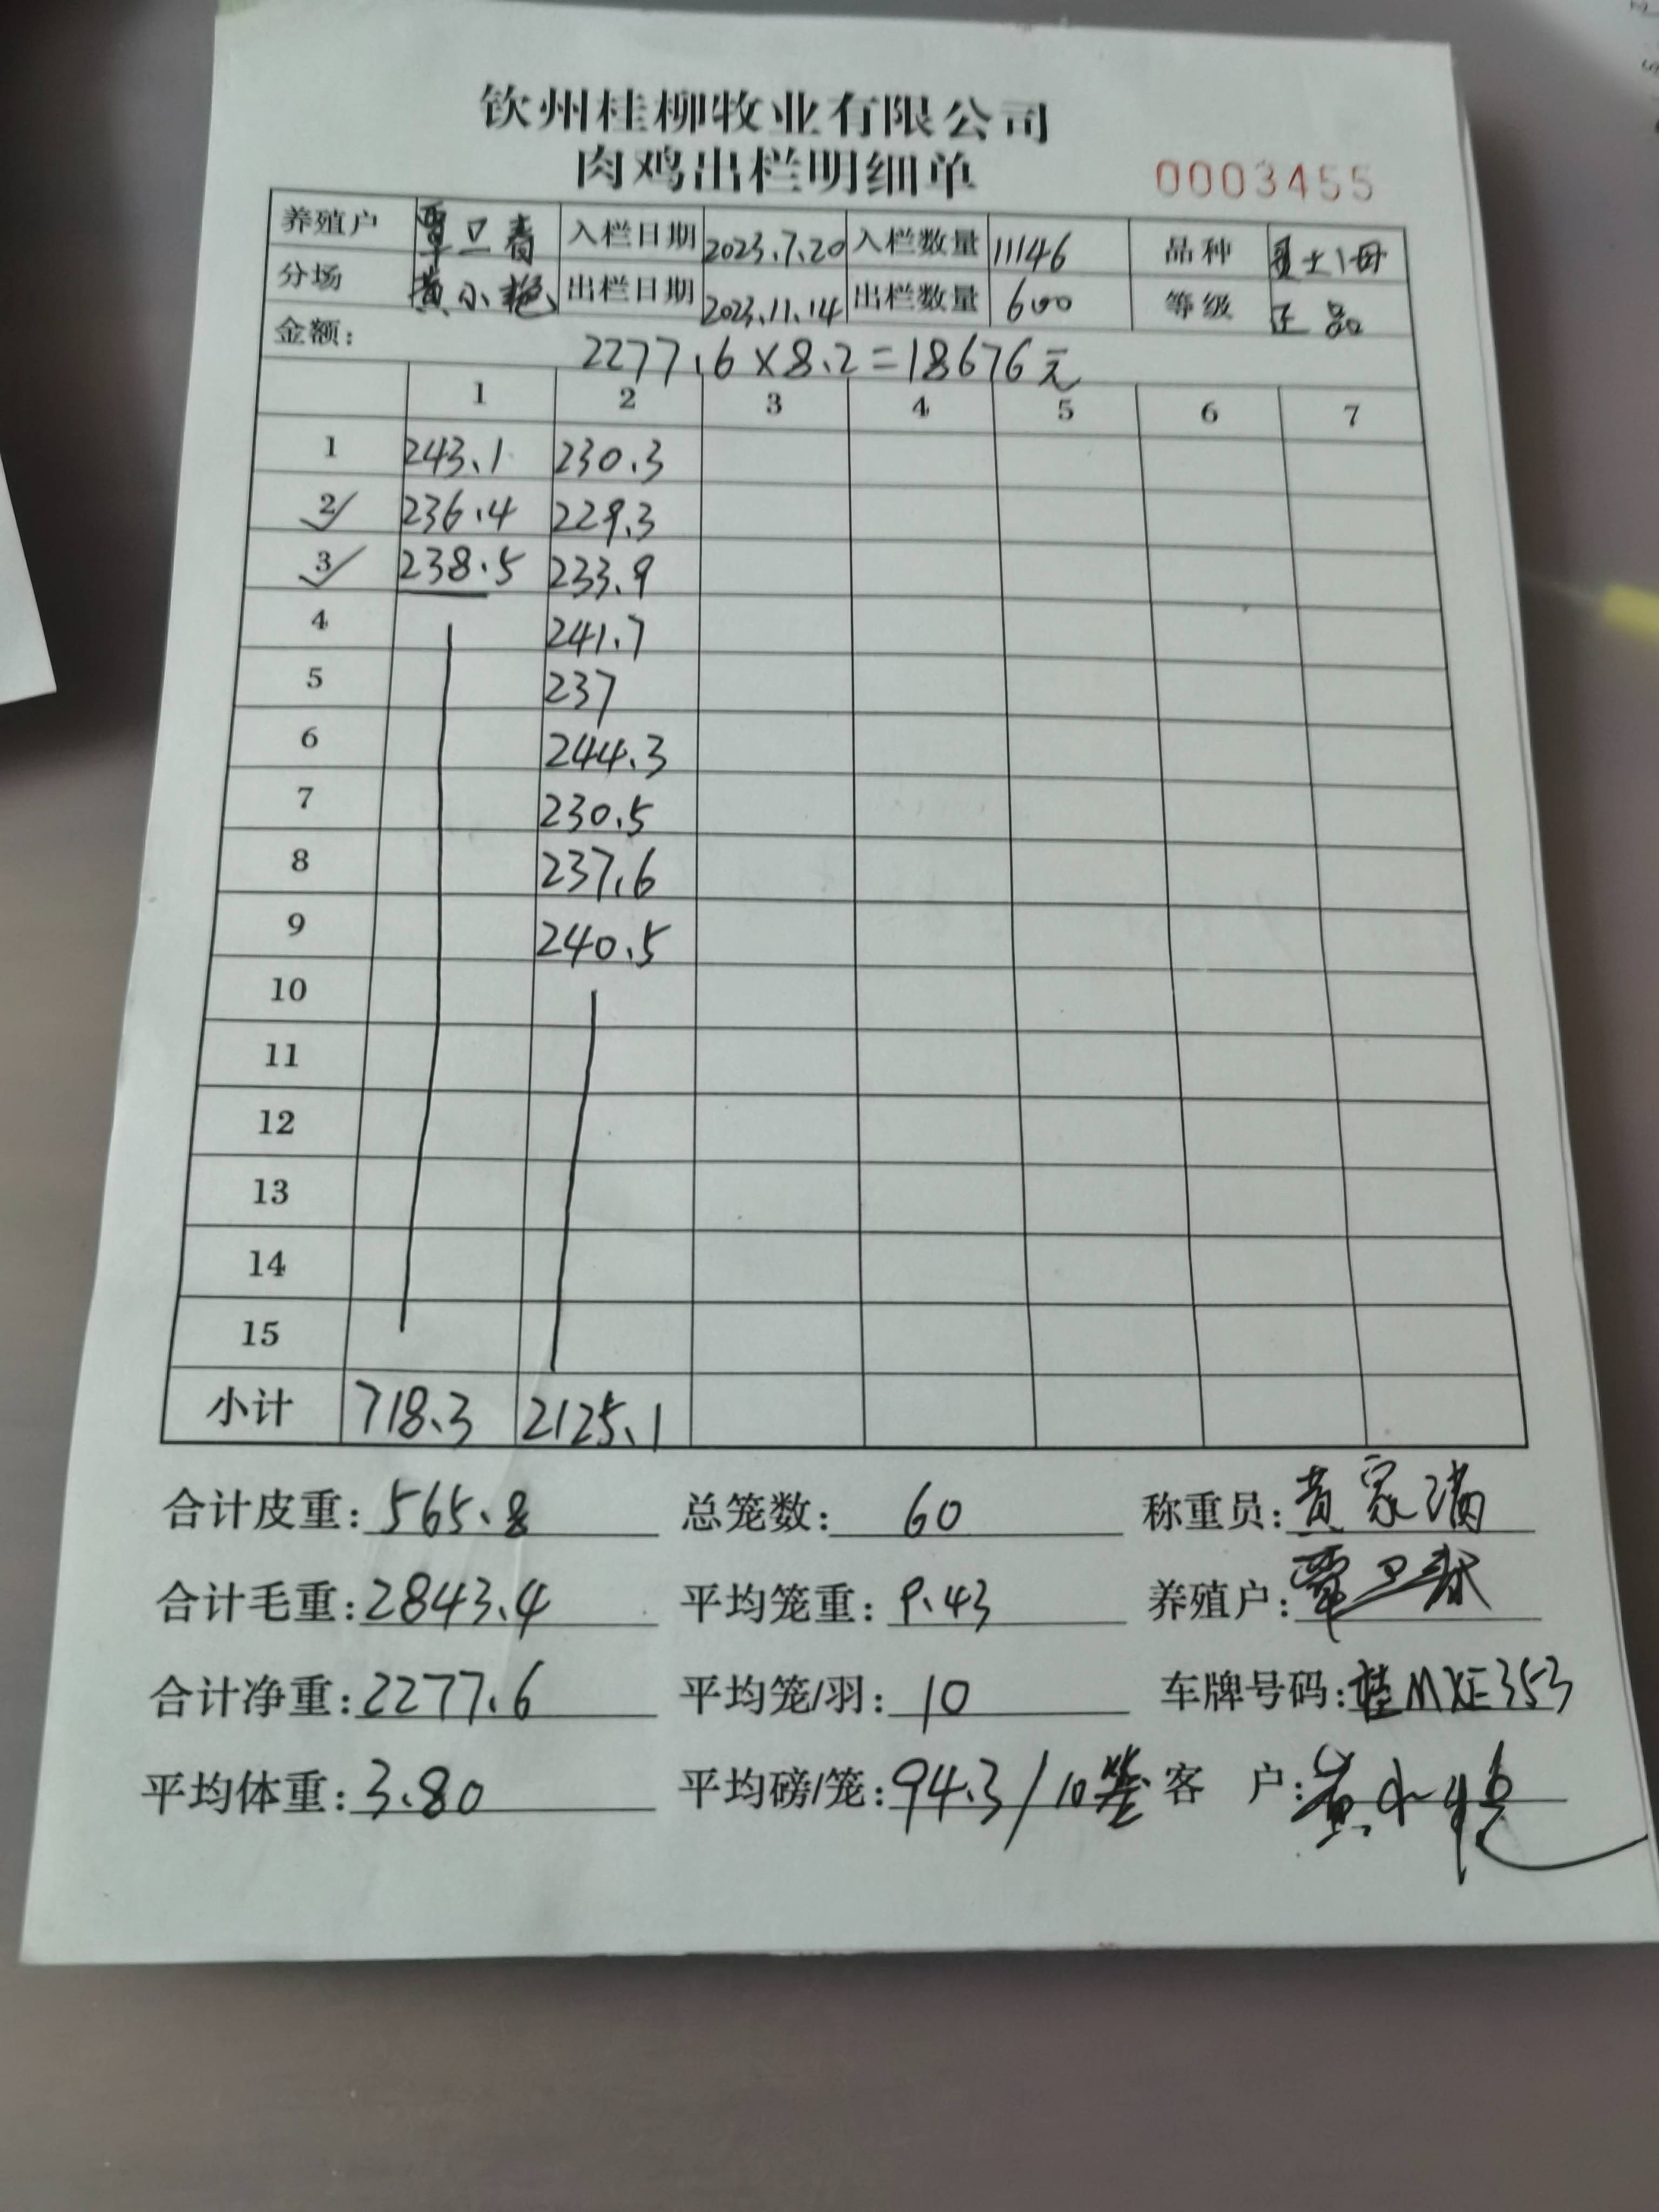 钦州桂柳牧业有限公司
肉鸡出栏明细单 0003455
养殖户 覃卫春 入栏日期 2023.7.20 入栏数量 11146 品种 土1母
分场 黄小艳 出栏日期 2023.11.14 出栏数量 600 等级 正品
金额: 2277.6×8.2=18676元
1 2 3 4 5 6 7
1 243.1 230.3
2 236.4 229.3
3 238.5 233.9
4 241.7
5 237
6 244.3
7 230.5
8 237.6
9 240.5
10
11
12
13
14
15
小计 718.3 2125.1
合计皮重: 565.8 总笼数: 60 称重员: 黄家满
合计毛重: 2843.4 平均笼重: 9.43 养殖户: 覃卫春
合计净重: 2277.6 平均笼/羽: 10 车牌号码: 桂MXE353
平均体重: 3.80 平均磅/笼: 94.3/10笼 客 户: 黄小艳